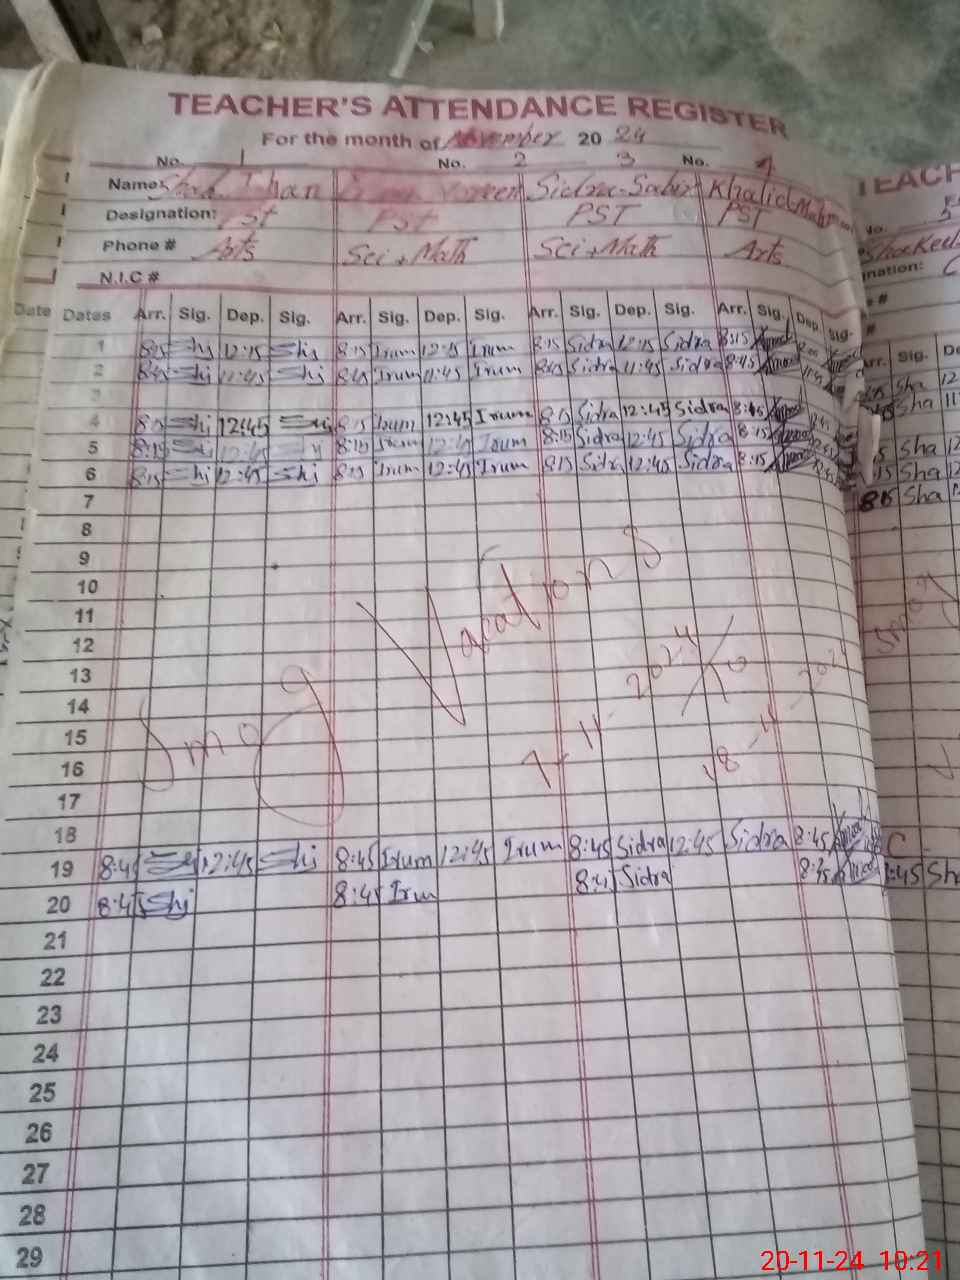 TEACHER'S ATTENDANCE REGISTER
For the month of November 20 24
No. 1 No. 2 3 No. 4
Name: Shah Jhan Noreen Sidra Sabir Khalid
Designation: PST PST PST PST
Phone # Arts Sci + Math Sci + Math Arts
N.I.C #
Dates Arr. Sig. Dep. Sig. Arr. Sig. Dep. Sig. Arr. Sig. Dep. Sig. Arr. Sig. Dep. Sig.
1 8:15 Shj 12:15 Shj 8:15 Irum 12:15 Irum 8:15 Sidra 12:15 Sidra 8:15
2 8:45 Shj 11:45 Shj 8:45 Irum 11:45 Irum 8:45 Sidra 11:45 Sidra 8:45
3
4 8:15 Shj 12:45 8:15 Irum 12:45 Irum 8:15 Sidra 12:45 Sidra 8:15
5 8:15 Shj 12:45 8:15 Irum 12:45 Irum 8:15 Sidra 12:45 Sidra 8:15
6 8:15 Shj 12:45 Shj 8:15 Irum 12:45 Irum 8:15 Sidra 12:45 Sidra 8:15
7
8
9
10
11
12
13
14
15
16
17
Smog Vacations
7-11-2024 To 18-11-2024
18
19 8:45 12:45 Shj 8:45 Irum 12:45 Irum 8:45 Sidra 12:45 Sidra 8:45
20 8:45 Shj 8:45 Irum 8:45 Sidra 8:45
21
22
23
24
25
26
27
28
29
Date
TEACH
No. 5
Shakeel
nation:
#
Arr. Sig. De
Sha 12
Sha 11
Sha 12
Sha 12
8:15 Sha
Smog
C
8:45 Sh
20-11-24 10:21